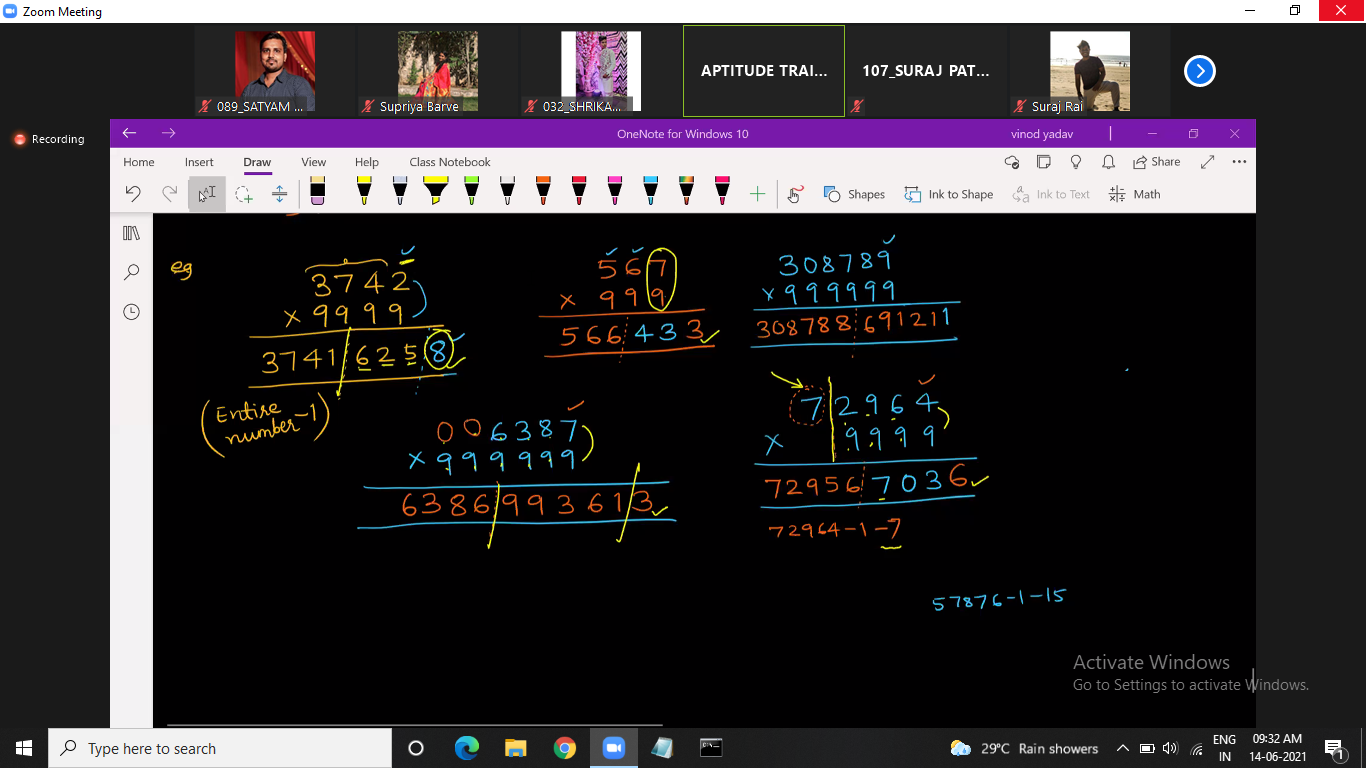 Zoom Meeting
089_SATYAM ...
Supriya Barve
032_SHRIKA...
APTITUDE TRAI...
107_SURAJ PAT...
Suraj Rai
Recording
OneNote for Windows 10
vinod yadav
Home Insert Draw View Help Class Notebook
Share
Shapes
Ink to Shape
Ink to Text
Math
eg
3742
× 9999
3741 6258
(Entire number-1)
567
× 999
566 433
308789
× 999999
308788 691211
006387
× 999999
6386 993613
72964
× 9999
72956 7036
72964-1-7
57876-1-15
Activate Windows
Go to Settings to activate Windows.
Type here to search
29°C Rain showers
ENG
IN
09:32 AM
14-06-2021
1